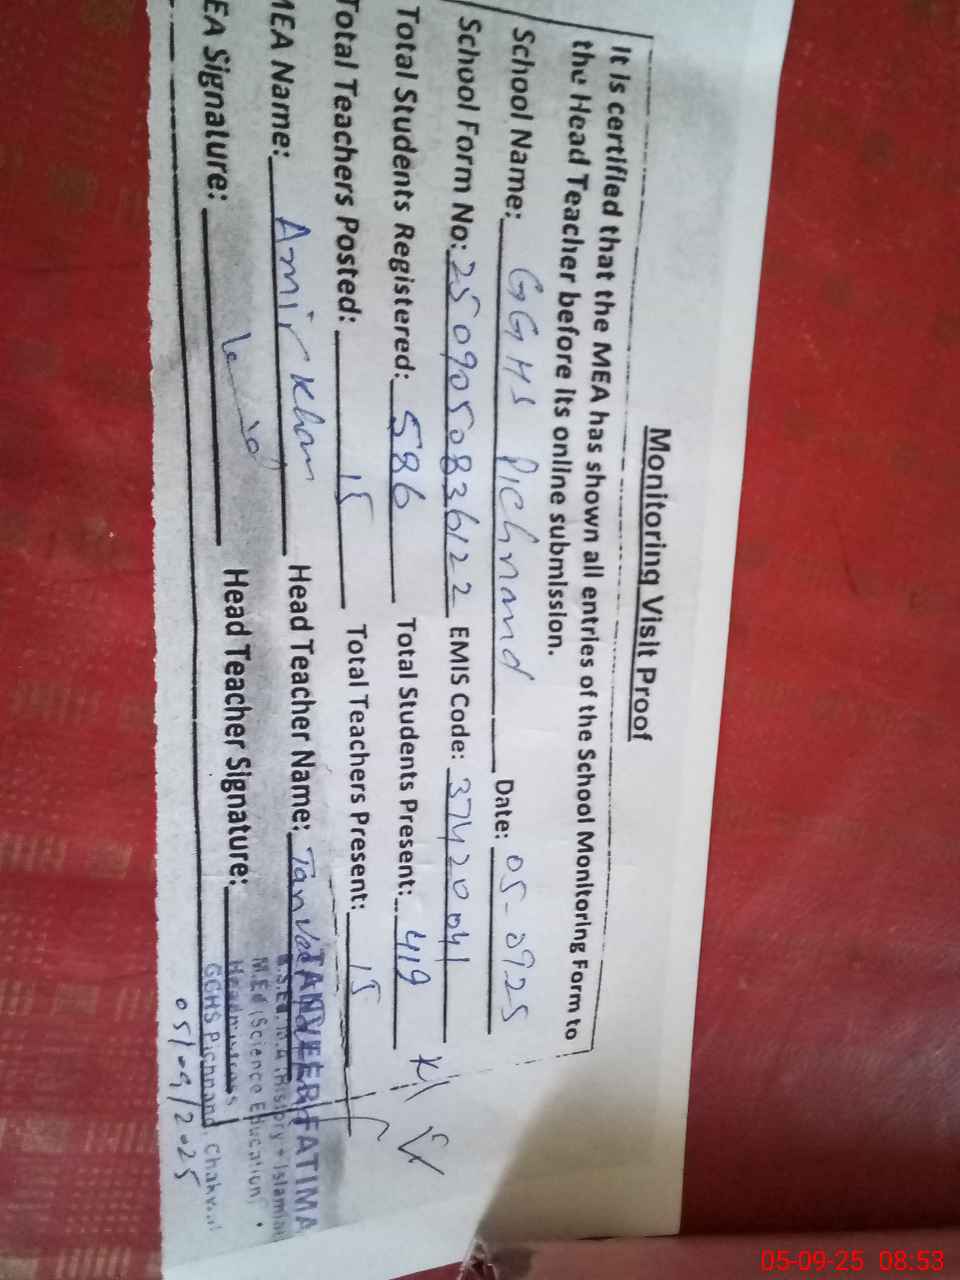 Monitoring Visit Proof
It is certified that the MEA has shown all entries of the School Monitoring Form to
the Head Teacher before its online submission.
School Name: GGHS Pichnand Date: 05-0925
School Form No: 2509050836122 EMIS Code: 37420041
Total Students Registered: 586 Total Students Present: 419
Total Teachers Posted: 15 Total Teachers Present: 15
MEA Name: Amir Khan Head Teacher Name: Tanveer
EA Signature: Head Teacher Signature:
TANVEER FATIMA
(History + Islamiat
M.Ed (Science Education)
Headmistress
GGHS Pichnand, Chakwal
05/09/2025
05-09-25 08:53